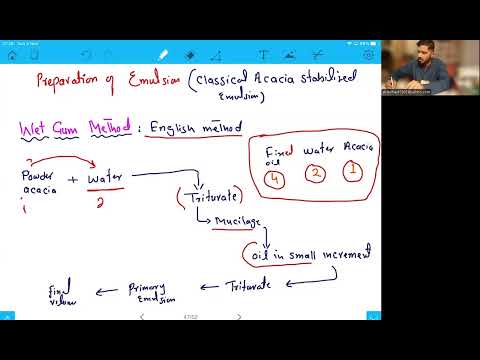 Preparation of Emulsion (Classical Acacia stabilised
Emulsion)
Wet Gum Method : English method
Fixed oil Water Acacia
4 2 1
Powder acacia + Water
1 2
(Triturate)
Mucilage
Oil in small increment
Final volume ← Primary Emulsion ← Triturate
47/52